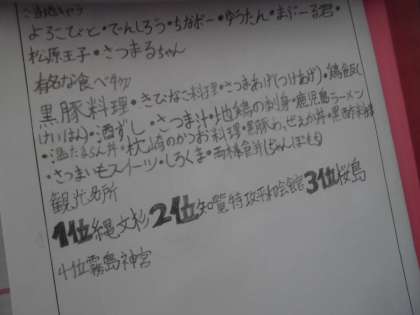 ご当地キャラ
よろこびと・でんしろう・ちなボー・ゆうたん・まじーる君・
松原王子・さつまるちゃん
有名な食べ物
黒豚料理・きびなご料理・さつまあげ(つけあげ)・鶏飯
(けいはん)・酒ずし・さつま汁・地鶏の刺身・鹿児島ラーメン
・温たまらん丼・枕崎のかつお料理・
・さつまいもスイーツ・しろくま・両棒餅(ぢゃんぼもち)
観光名所
1位縄文杉2位知覧特攻平和会館3位桜島
4位霧島神宮